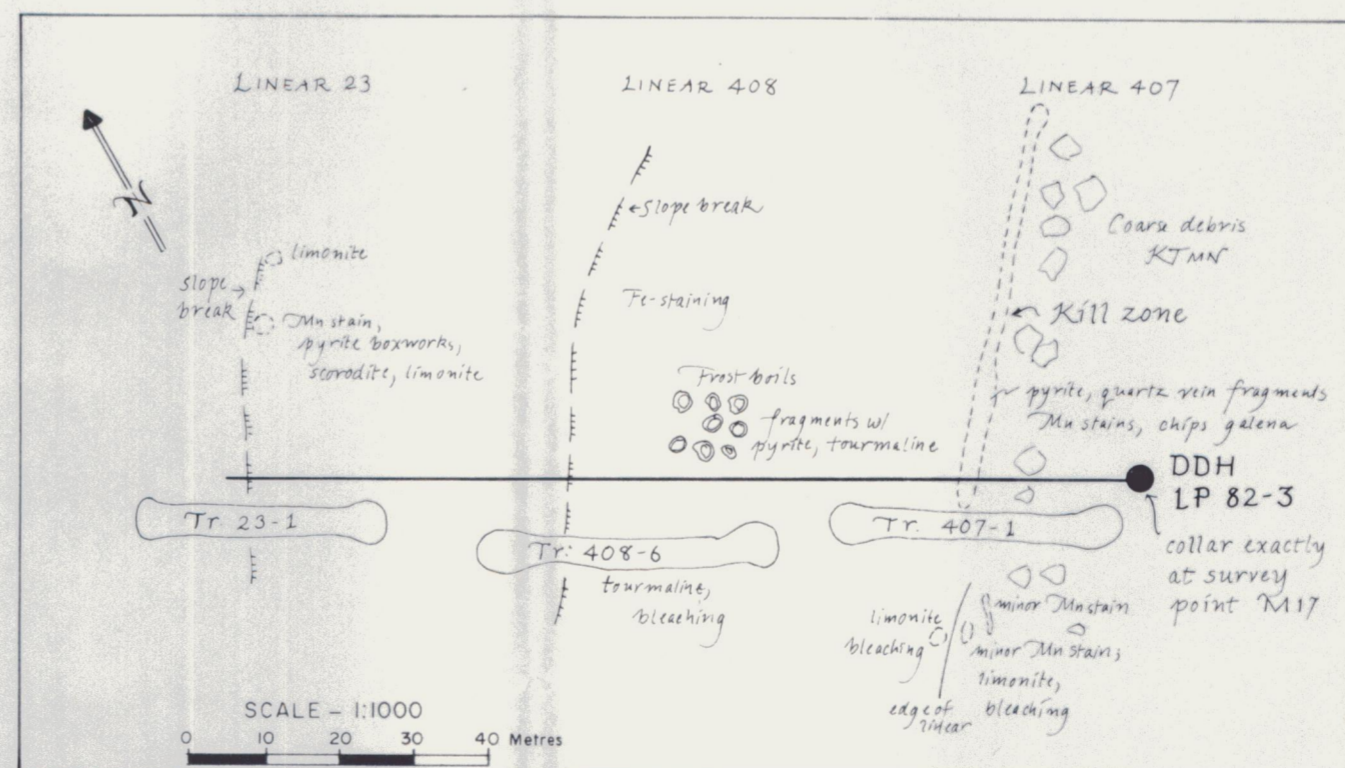 LINEAR 23
LINEAR 408
LINEAR 407
N
←Slope break
Coarse debris
KTMN
limonite
slope
break
Mn stain,
pyrite boxworks,
scorodite, limonite
Fe-staining
Kill zone
Frost boils
fragments w/
pyrite, tourmaline
pyrite, quartz vein fragments
Mn stains, chips galena
DDH
LP 82-3
collar exactly
at survey
point M17
Tr. 23-1
Tr. 408-6
Tr. 407-1
tourmaline,
bleaching
limonite
bleaching
minor Mn stain
minor Mn stain,
limonite,
bleaching
edge of
linear
SCALE - 1:1000
0 10 20 30 40 Metres